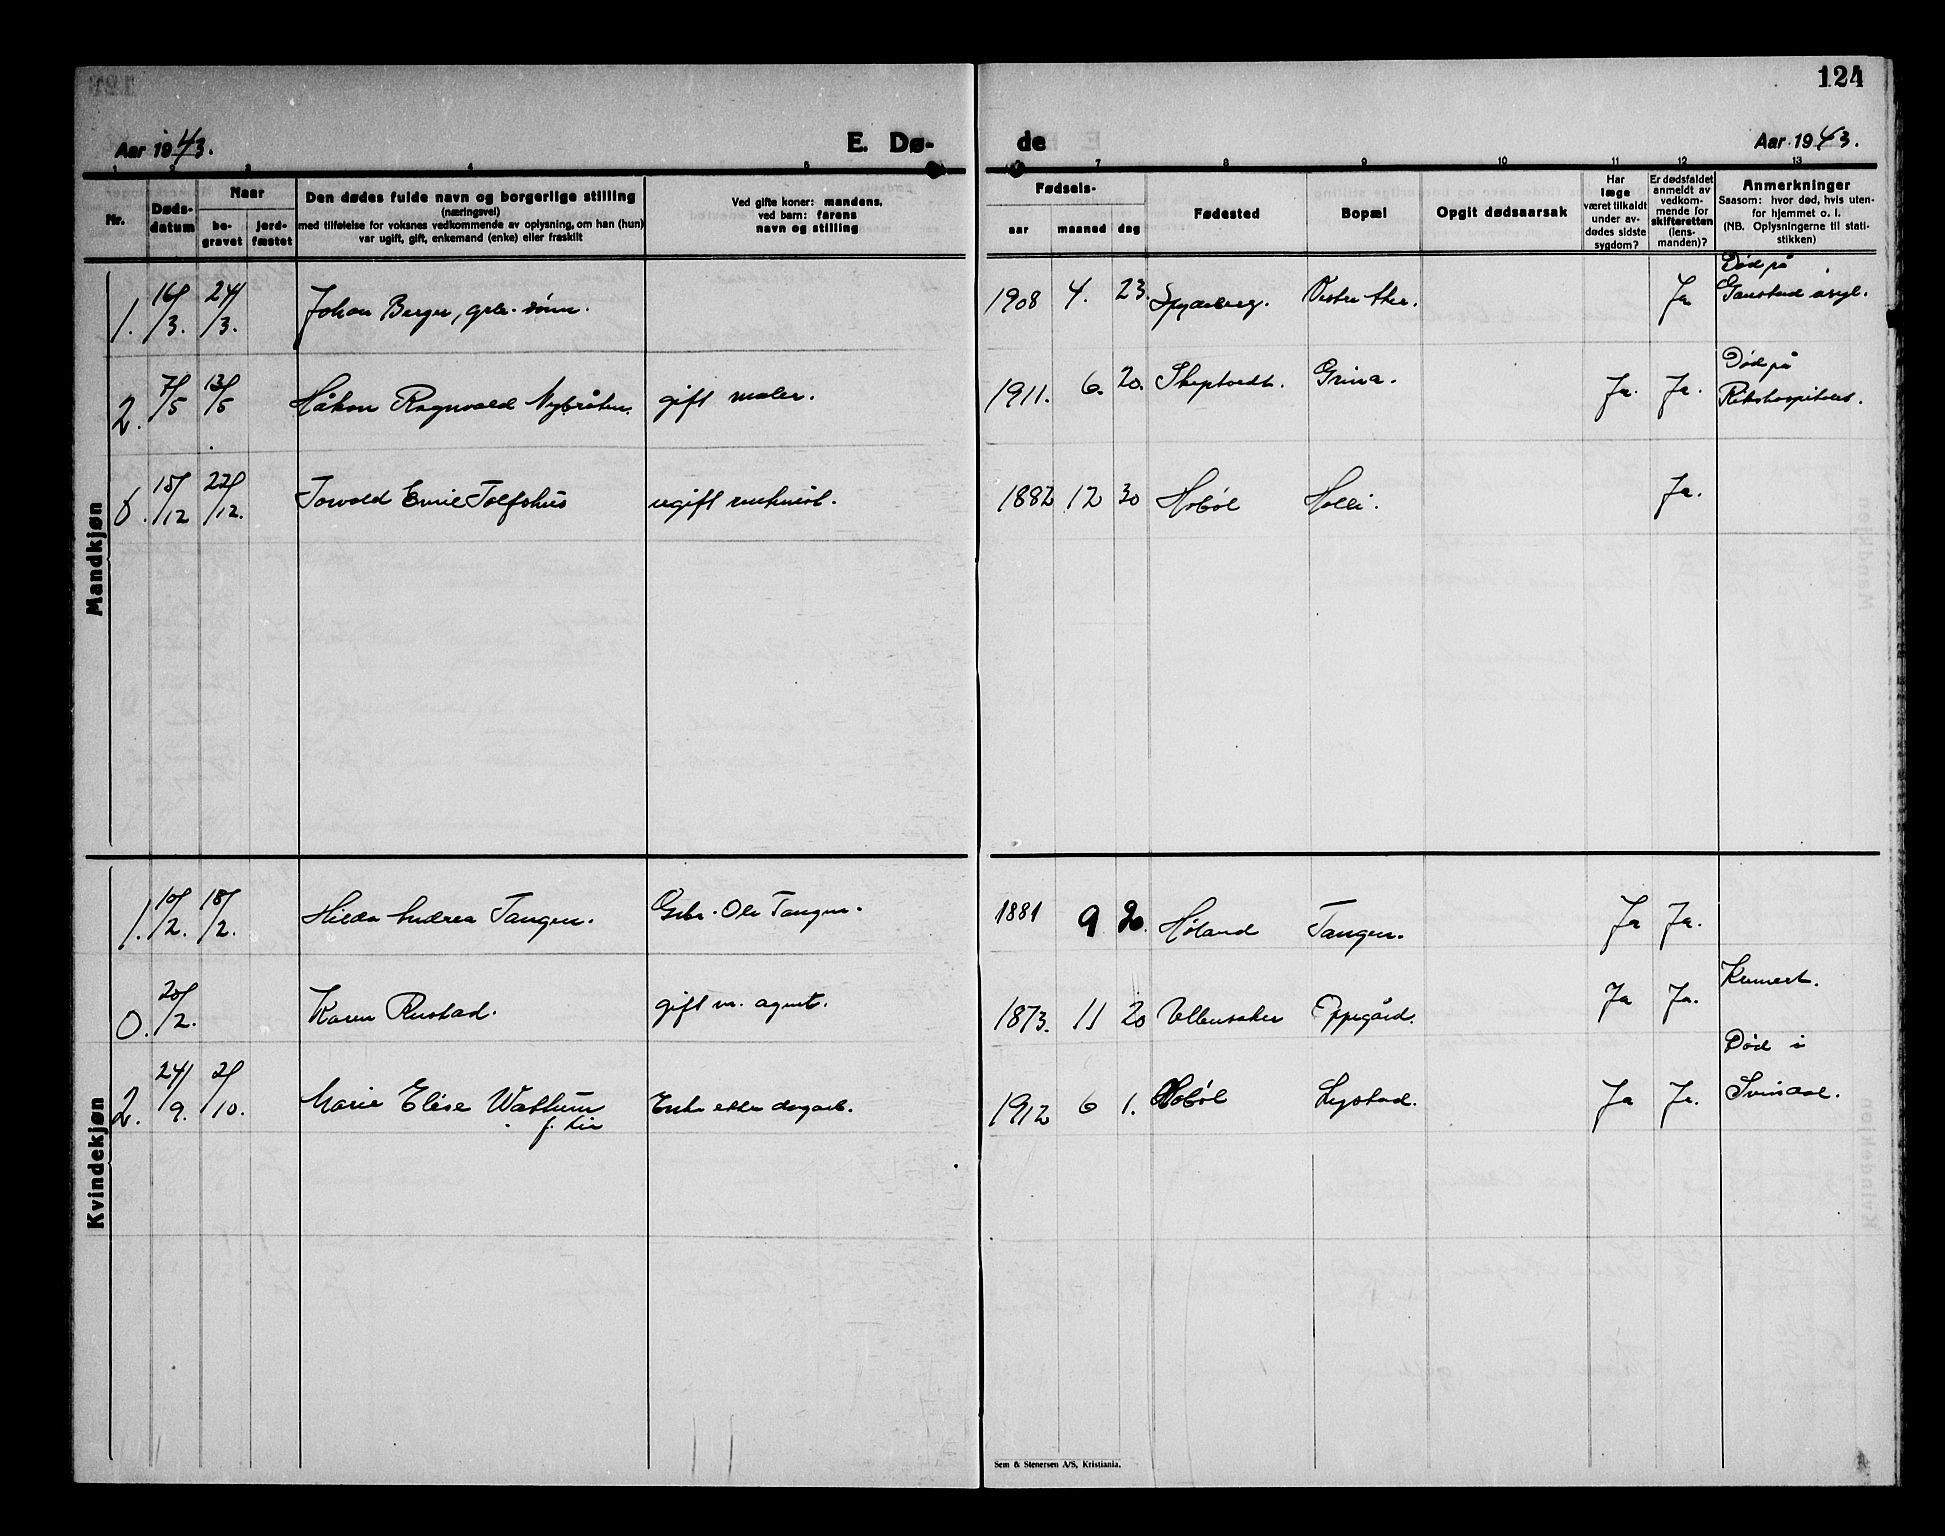 124
Aar 1943.
E. Dø-
de
Aar 1943.
1 2 3 4 5
7 8 9 10 11 12 13
Nr.
Døds-
datum
Naar
be-
gravet
jord-
fæstet
Den dødes fulde navn og borgerlige stilling
(næringsvei)
med tilføielse for voksnes vedkommende av oplysning, om han (hun)
var ugift, gift, enkemand (enke) eller fraskilt
Ved gifte koner: mandens,
ved barn: farens
navn og stilling
Fødsels-
aar maaned dag
Fødested
Bopæl
Opgit dødsaarsak
Har
læge
været tilkaldt
under av-
dødes sidste
sygdom?
Er dødsfaldet
anmeldt av
vedkom-
mende for
skifteretten
(lens-
manden)?
Anmerkninger
Saasom: hvor død, hvis uten-
for hjemmet o. l.
(NB. Oplysningerne til stati-
stikken)
Mandkjøn
1. 16/3. 24/3. Johan Berger, grbr. sønn. 1908 4. 23. Spydeberg. Vestre Aker. Ja Død på
Gaustad asyl.
2. 7/5 13/5 Håkon Ragnvald Nybråten. gift maler. 1911. 6. 20. Skeptvedt. Grina. Ja. Ja. Død på
Rikshospitalet.
15/12 22/12. Torvald Emil Tolfshus ugift 1882 12 30 Hobøl Holli. Ja.
Kvindekjøn
1. 10/2. 18/2. Hilda Andrea Tangen. Grbr. Ole Tangen. 1881 9 20. Høland Tangen. Ja Ja.
0. 20/2. Karen Rustad. gift m. agent. 1873. 11 20 Ullensaker Oppegård. Ja Ja. Kremert.
2. 24/9. 2/10. Marie Elise Wattum Enke etter dagarb. 1912 6 1. Hobøl Ja Ja. Død i
f. Lie
Svindal.
Sem & Stenersen A/S, Kristiania.